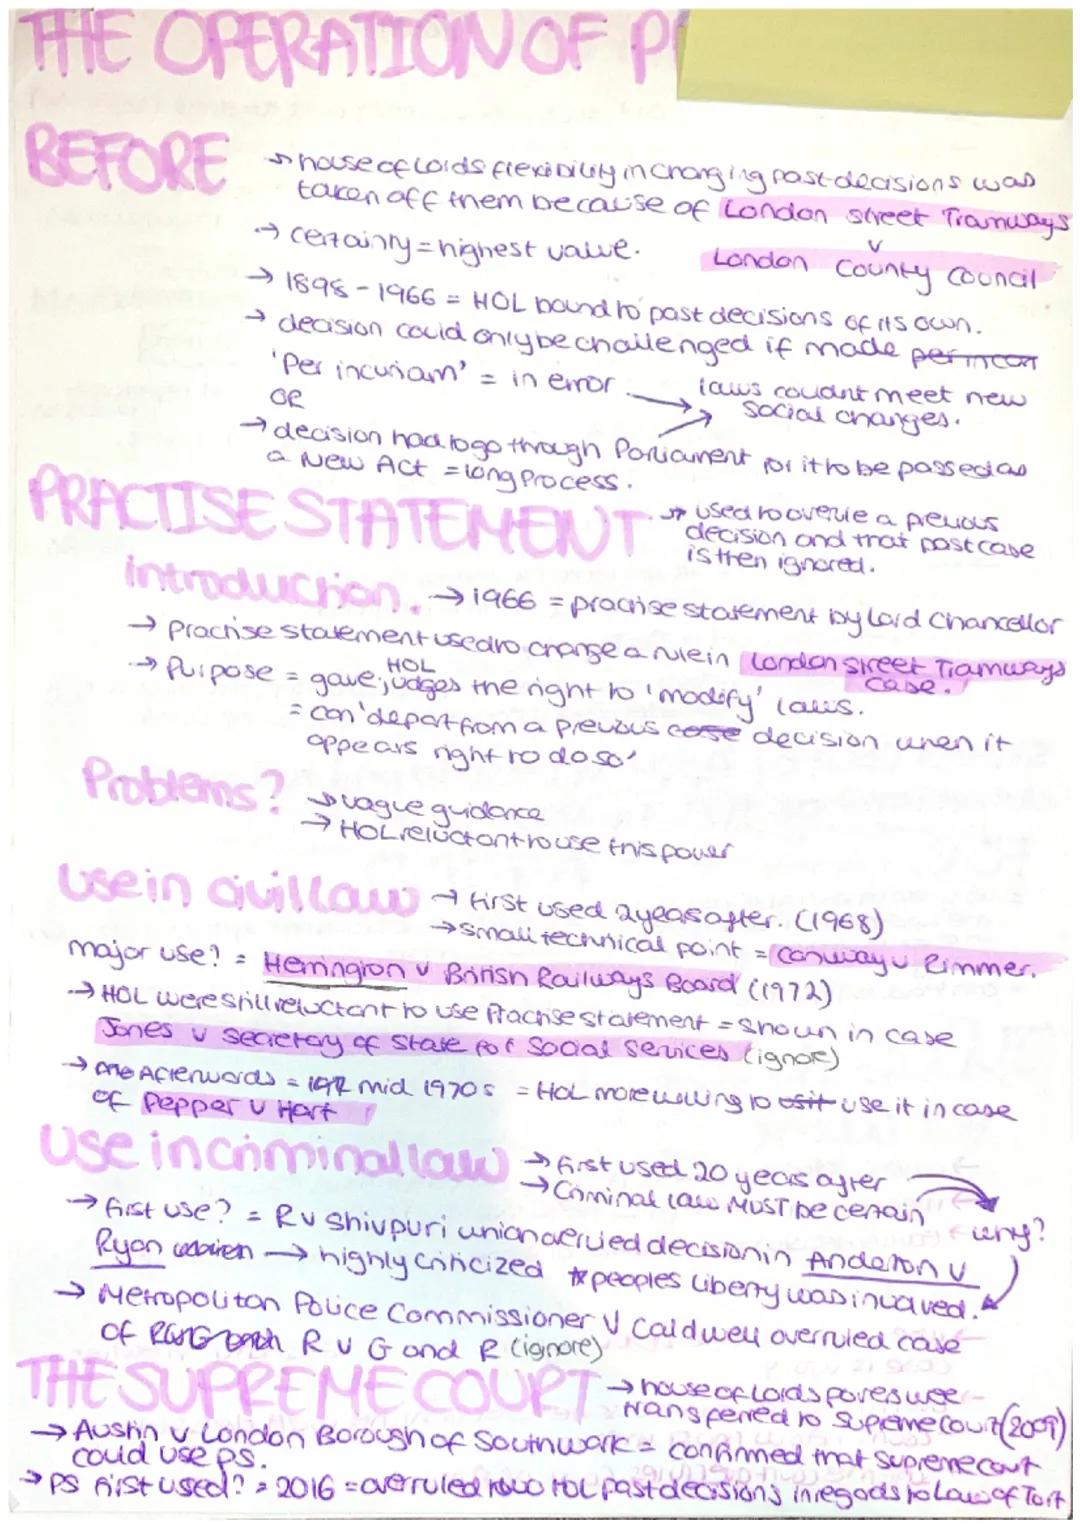 THE OPERATION OF P
BEFORE
→ house of Lords flexibility in changing past decisions was
taken off them because of London street Tramways
v
London County Council
→ certainty = highest value.
→ 1898 - 1966 = HOL bound to past decisions of its own.
→ decision could only be challenged if made
'Per incuriam' = in error
OR
laws coudnt meet new
social changes.
→ decision had to go through Parliament for it to be passed as
a New Act = long Process.
PRACTISE STATEMENT
→ used to overule a previous
decision and that past case
is then ignored.
introduction. → 1966 = practise statement by Lord Chancellor
→ Practise statement used to change a rule in London street Tramways
case.
→ Purpose = gave HOL judges the right to 'modify' laws.
= can 'depart from a previous case decision when it
appears right to do so'
Problems? → vague guidance
→ HOL reluctant to use this power
use in civil law → First used 2 years after. (1968)
→ small technical point = Conway v Rimmer.
major use? = Herrington v British Railways Board (1972)
→ HOL were still reluctant to use Practise statement = shown in case
Jones v secretary of state for Social services (ignore)
→ Afterwords = mid 1970s = HOL more willing to use it in case
of Pepper v Hart
use in criminal law → first used 20 years after
→ Criminal law MUST be certain
why?
→ first use? = R v Shivpuri which overuled decision in Anderton v
Ryan → highly criticized * peoples liberty was involved.
→ Metropolitan Police Commissioner v Caldwell overruled case
of R v G and R (ignore)
THE SUPREME COURT → house of Lords powers were
transferred to Supreme court (2009)
→ Austin v London Borough of Southwark = confirmed that supreme court
could use ps.
→ PS first used? = 2016 = overruled two HOL past decisions in regads to Law of Tort